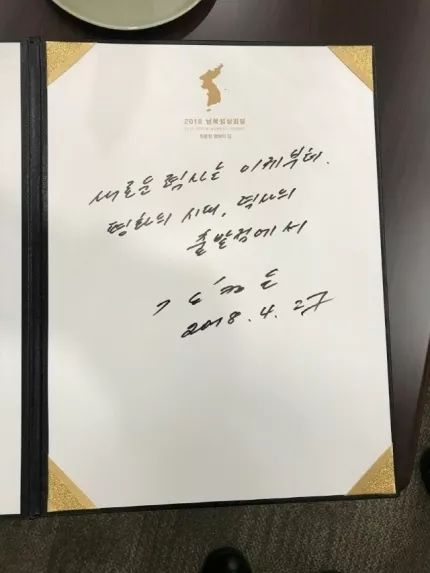 2018 남북정상회담
판문점 평화의 집
새로운 력사는 이제부터.
평화의 시대, 력사의
출발점에서
김정은
2018. 4. 27